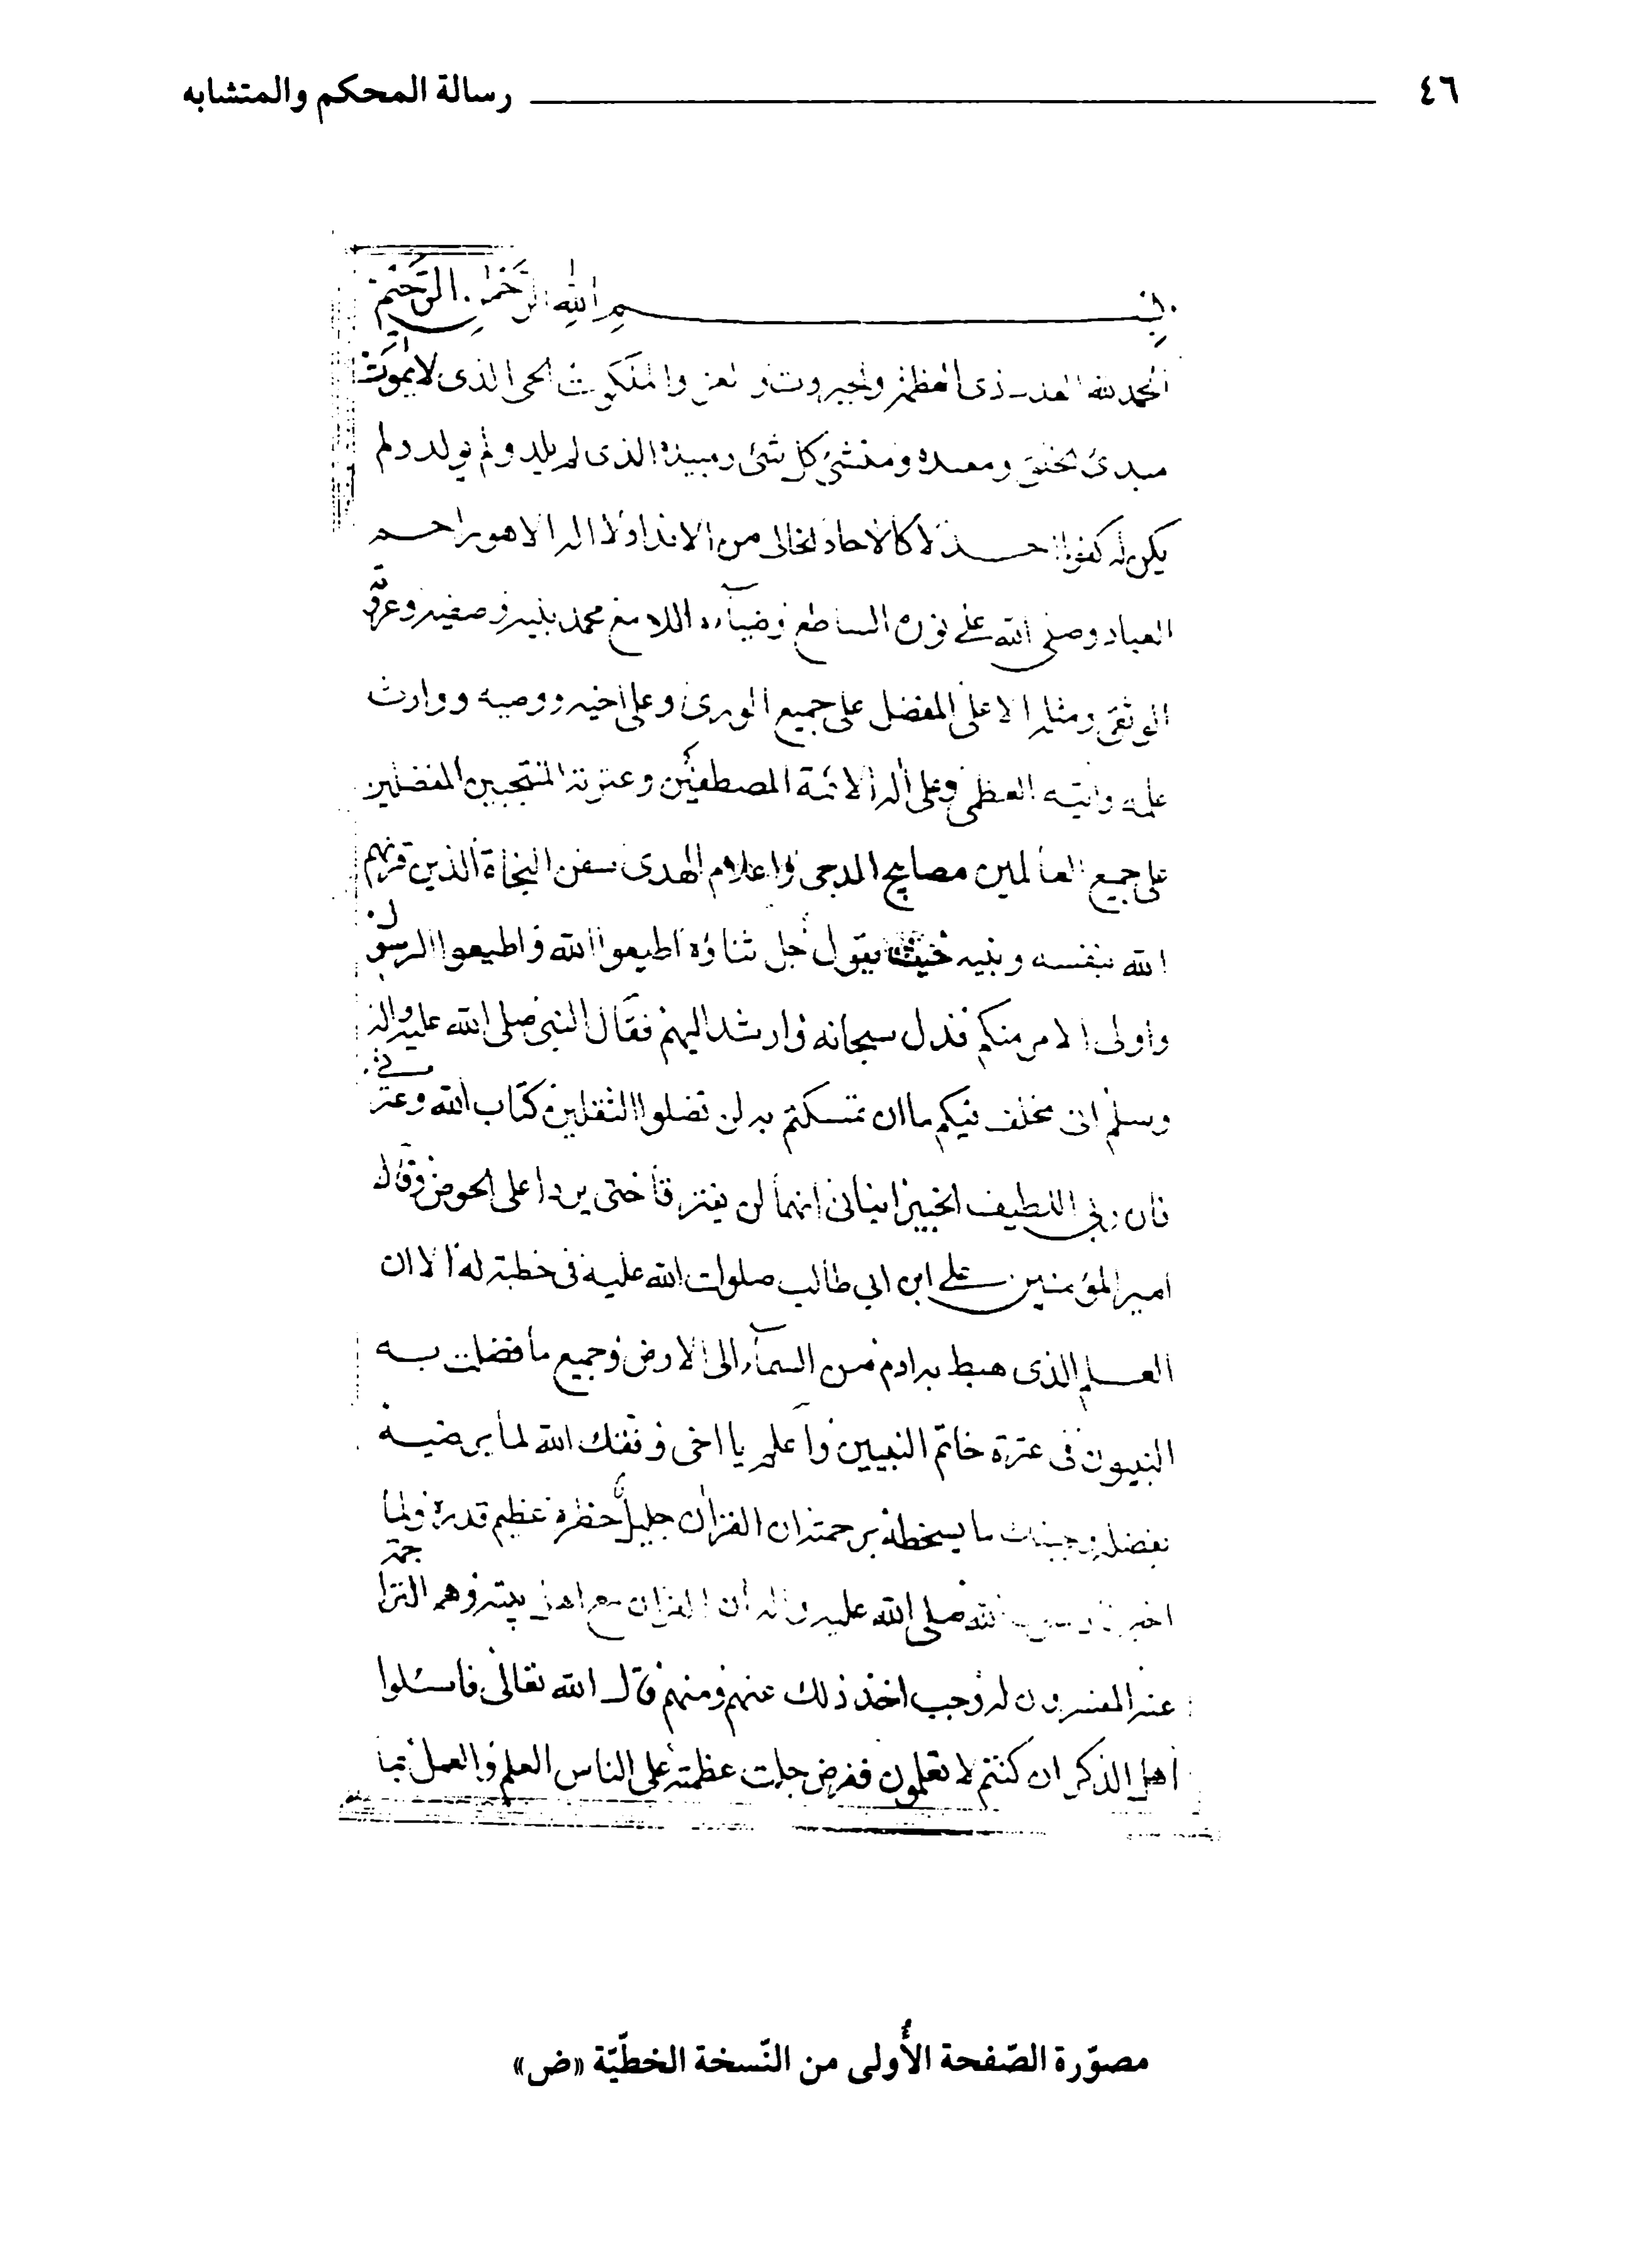 ٤٦ رسالة المحكم والمتشابه
بسم الله الرحمن الرحيم
الحمد لله ذى العظمة والجبروت والعز والملكوت الحى الذى لا يموت
مبدئ الخلق ومعيده ومنشئ كل شئ ومبيده الذى لم يلد ولم يولد ولم
يكن له كفوا احد لا كالاحاد الخالى من الانداد لا اله الا هو راحم
العباد وصلى الله على نوره الساطع وضياءه اللامع محمد نبيه وصفيه وعروته
الوثقى ومثله الاعلى المفضل على جميع الورى وعلى اخيه ووصيه ووارث
علمه وايته العظمى وعلى اله الائمة المصطفين وعترته المنتجبين المفضلين
على جميع العالمين مصابيح الدجى واعلام الهدى سفن النجاة الذين قرنهم
الله بنفسه ونبيه حيث يقول جل ثناؤه اطيعوا الله واطيعوا الرسول
واولى الامر منكم فدل سبحانه وارشد اليهم فقال النبى صلى الله عليه واله
وسلم انى مخلف فيكم ما ان تمسكتم به لن تضلوا الثقلين كتاب الله وعترتى
فان ربى اللطيف الخبير انبانى انهما لن يفترقا حتى يردا على الحوض وقال
امير المؤمنين على ابن ابى طالب صلوات الله عليه فى خطبة له الا ان
العلم الذى هبط به ادم من السماء الى الارض وجميع ما فضلت به
النبيون فى عترة خاتم النبيين واعلم يا اخى وفقك الله لما يرضيه
بفضله وجنبك ما يسخطه برحمته ان القران جليل خطره عظيم قدره ولما
اخبرنا رسول الله صلى الله عليه واله ان القران مع اهل بيته وهم التراجمة
عنه المفسرون له وجب اخذ ذلك عنهم ومنهم قال الله تعالى فاسئلوا
اهل الذكر ان كنتم لا تعلمون ففرض جلت عظمته على الناس العلم والعمل بما
مصوّرة الصّفحة الأُولى من النّسخة الخطيّة «ض»